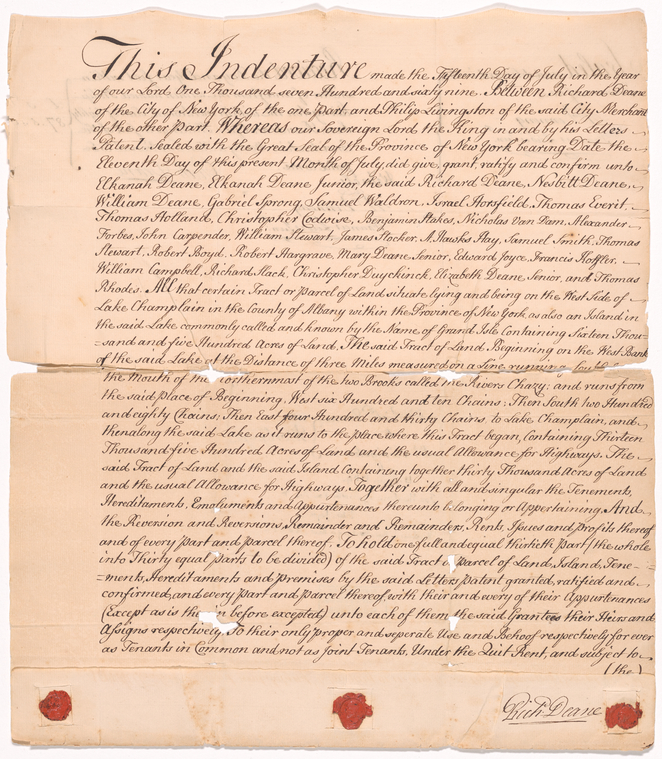 This Indenture made the Fifteenth Day of July in the Year
of our Lord One Thousand seven Hundred and sixty nine. Between Richard Deane
of the City of New York, of the one part, and Philip Livingston of the said City Merchant
of the other part. Whereas our Sovereign Lord the King in and by his Letters
Patent Sealed with the Great Seal of the Province of New York bearing Date the
Eleventh Day of this present Month of July did give, grant, ratify and confirm unto
Elkanah Deane, Elkanah Deane Junior, the said Richard Deane, Nesbitt Deane,
William Deane, Gabriel Sprong, Samuel Waldron, Israel Horsfield, Thomas Everit,
Thomas Holland, Christopher Codwise, Benjamin Stakes, Nicholas Van Dam, Alexander
Forbes, John Carpender, William Stewart, James Hocker, A. Hawks Hay, Samuel Smith, Thomas
Stewart, Robert Boyd, Robert Hargrave, Mary Deane Senior, Edward Joyce, Francis Koffler
William Campbell, Richard Hack, Christopher Duyckinck, Elizabeth Deane, Senior, and Thomas
Rhodes. All that certain Tract or parcel of Land situate lying and being on the West Side of
Lake Champlain in the County of Albany within the Province of New York, as also an Island in
the said Lake commonly called and known by the Name of Grand Isle Containing Sixteen Thou-
=sand and five Hundred Acres of Land, The said Tract of Land Beginning on the West Bank
of the said Lake at the Distance of three Miles measured on a Line running
the Mouth of the Northernmost of the two Brooks called the Rivers Chazy; and runs from
the said place of Beginning, West six Hundred and ten Chains; Then South two Hundred
and eighty Chains; Then East four Hundred and thirty Chains, to Lake Champlain, and
then along the said Lake as it runs to the place where this Tract began, Containing Thirteen
Thousand five Hundred Acres of Land and the usual Allowance for Highways. The
said Tract of Land and the said Island Containing together thirty Thousand Acres of Land
and the usual Allowance for Highways. Together with all and singular the Tenements,
Hereditaments, Emoluments and Appurtenances thereunto belonging or Appertaining. And
the Reversion and Reversions, Remainder and Remainders, Rents, Issues and profits thereof
and of every part and parcel thereof. To hold one full and equal thirtieth part (the whole
into Thirty equal parts to be divided) of the said Tract or parcel of Land, Island, Tene-
=ments, Hereditaments and premises by the said Letters patent granted, ratified and
confirmed, and every part and parcel thereof with their and every of their Appurtenances
(Except as is therein before excepted) unto each of them the said Grantees their Heirs and
Assigns respectively, To their only proper and seperate Use and Behoof respectively for ever
as Tenants in Common and not as joint Tenants, Under the Quit Rent, and subject to
(the)
Rich<sup>d</sup> Deane